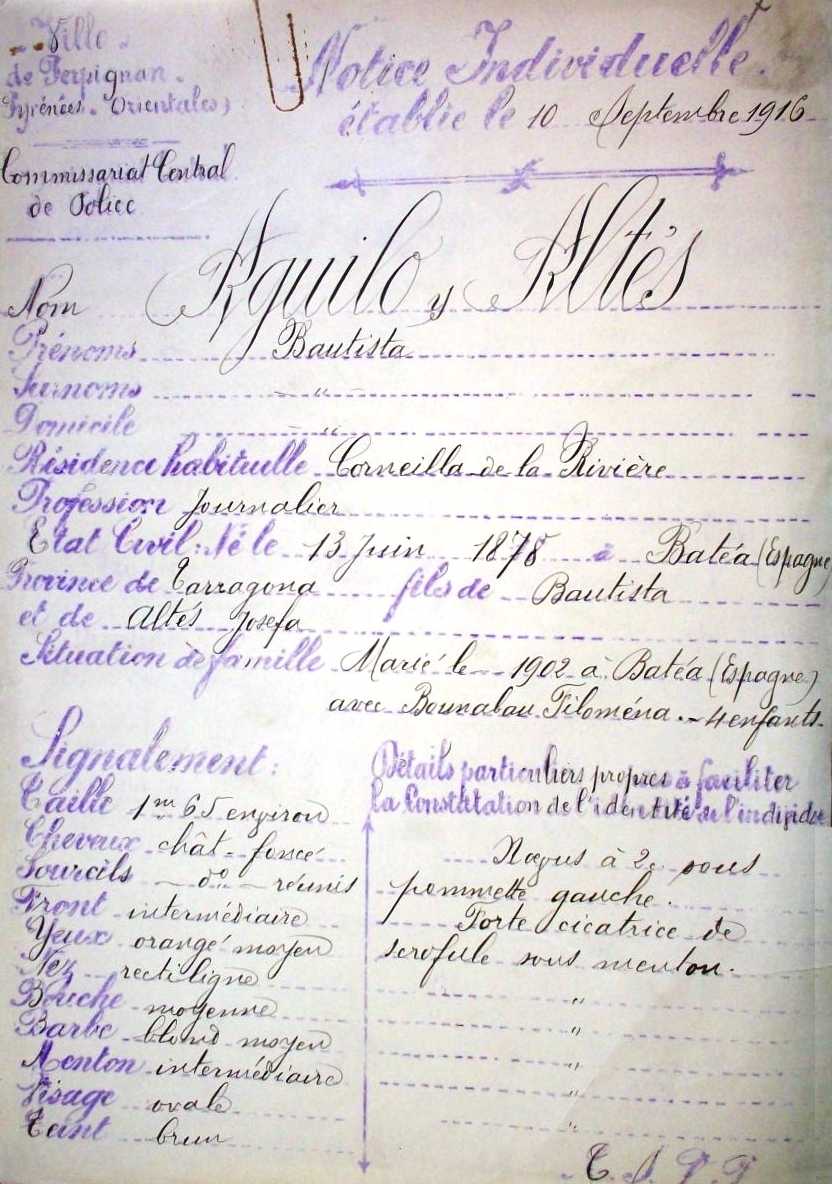 Ville
de Perpignan
Pyrénées-Orientales)
Commissariat Central
de Police
Notice Individuelle.
établie le 10 Septembre 1916
Nom Aguilo y Altés
Prénoms Bautista
Surnoms - " -
Domicile - "
Résidence habituelle Corneilla-de la Rivière
Profession Journalier
Etat Civil: Né le 13 Juin 1878 à Batéa (Espagne)
Province de Tarragona fils de Bautista
et de Altés Josefa
Situation de famille Marié le 1902 à Batéa (Espagne)
avec Bounalau Filoména. - 4 enfants.
Signalement:
Taille 1m 65 environ
Cheveux chât-foncé
Sourcils - do - réunis
Front intermédiaire
Yeux orangé moyen
Nez rectiligne
Bouche moyenne
Barbe blond moyen
Menton intermédiaire
Visage ovale
Teint brun
Détails particuliers propres à faciliter
la Constatation de l'identité de l'individu
Naevus à 2c sous
pommette gauche.
Forte cicatrice de
scrofule sous menton.
"
"
"
"
"